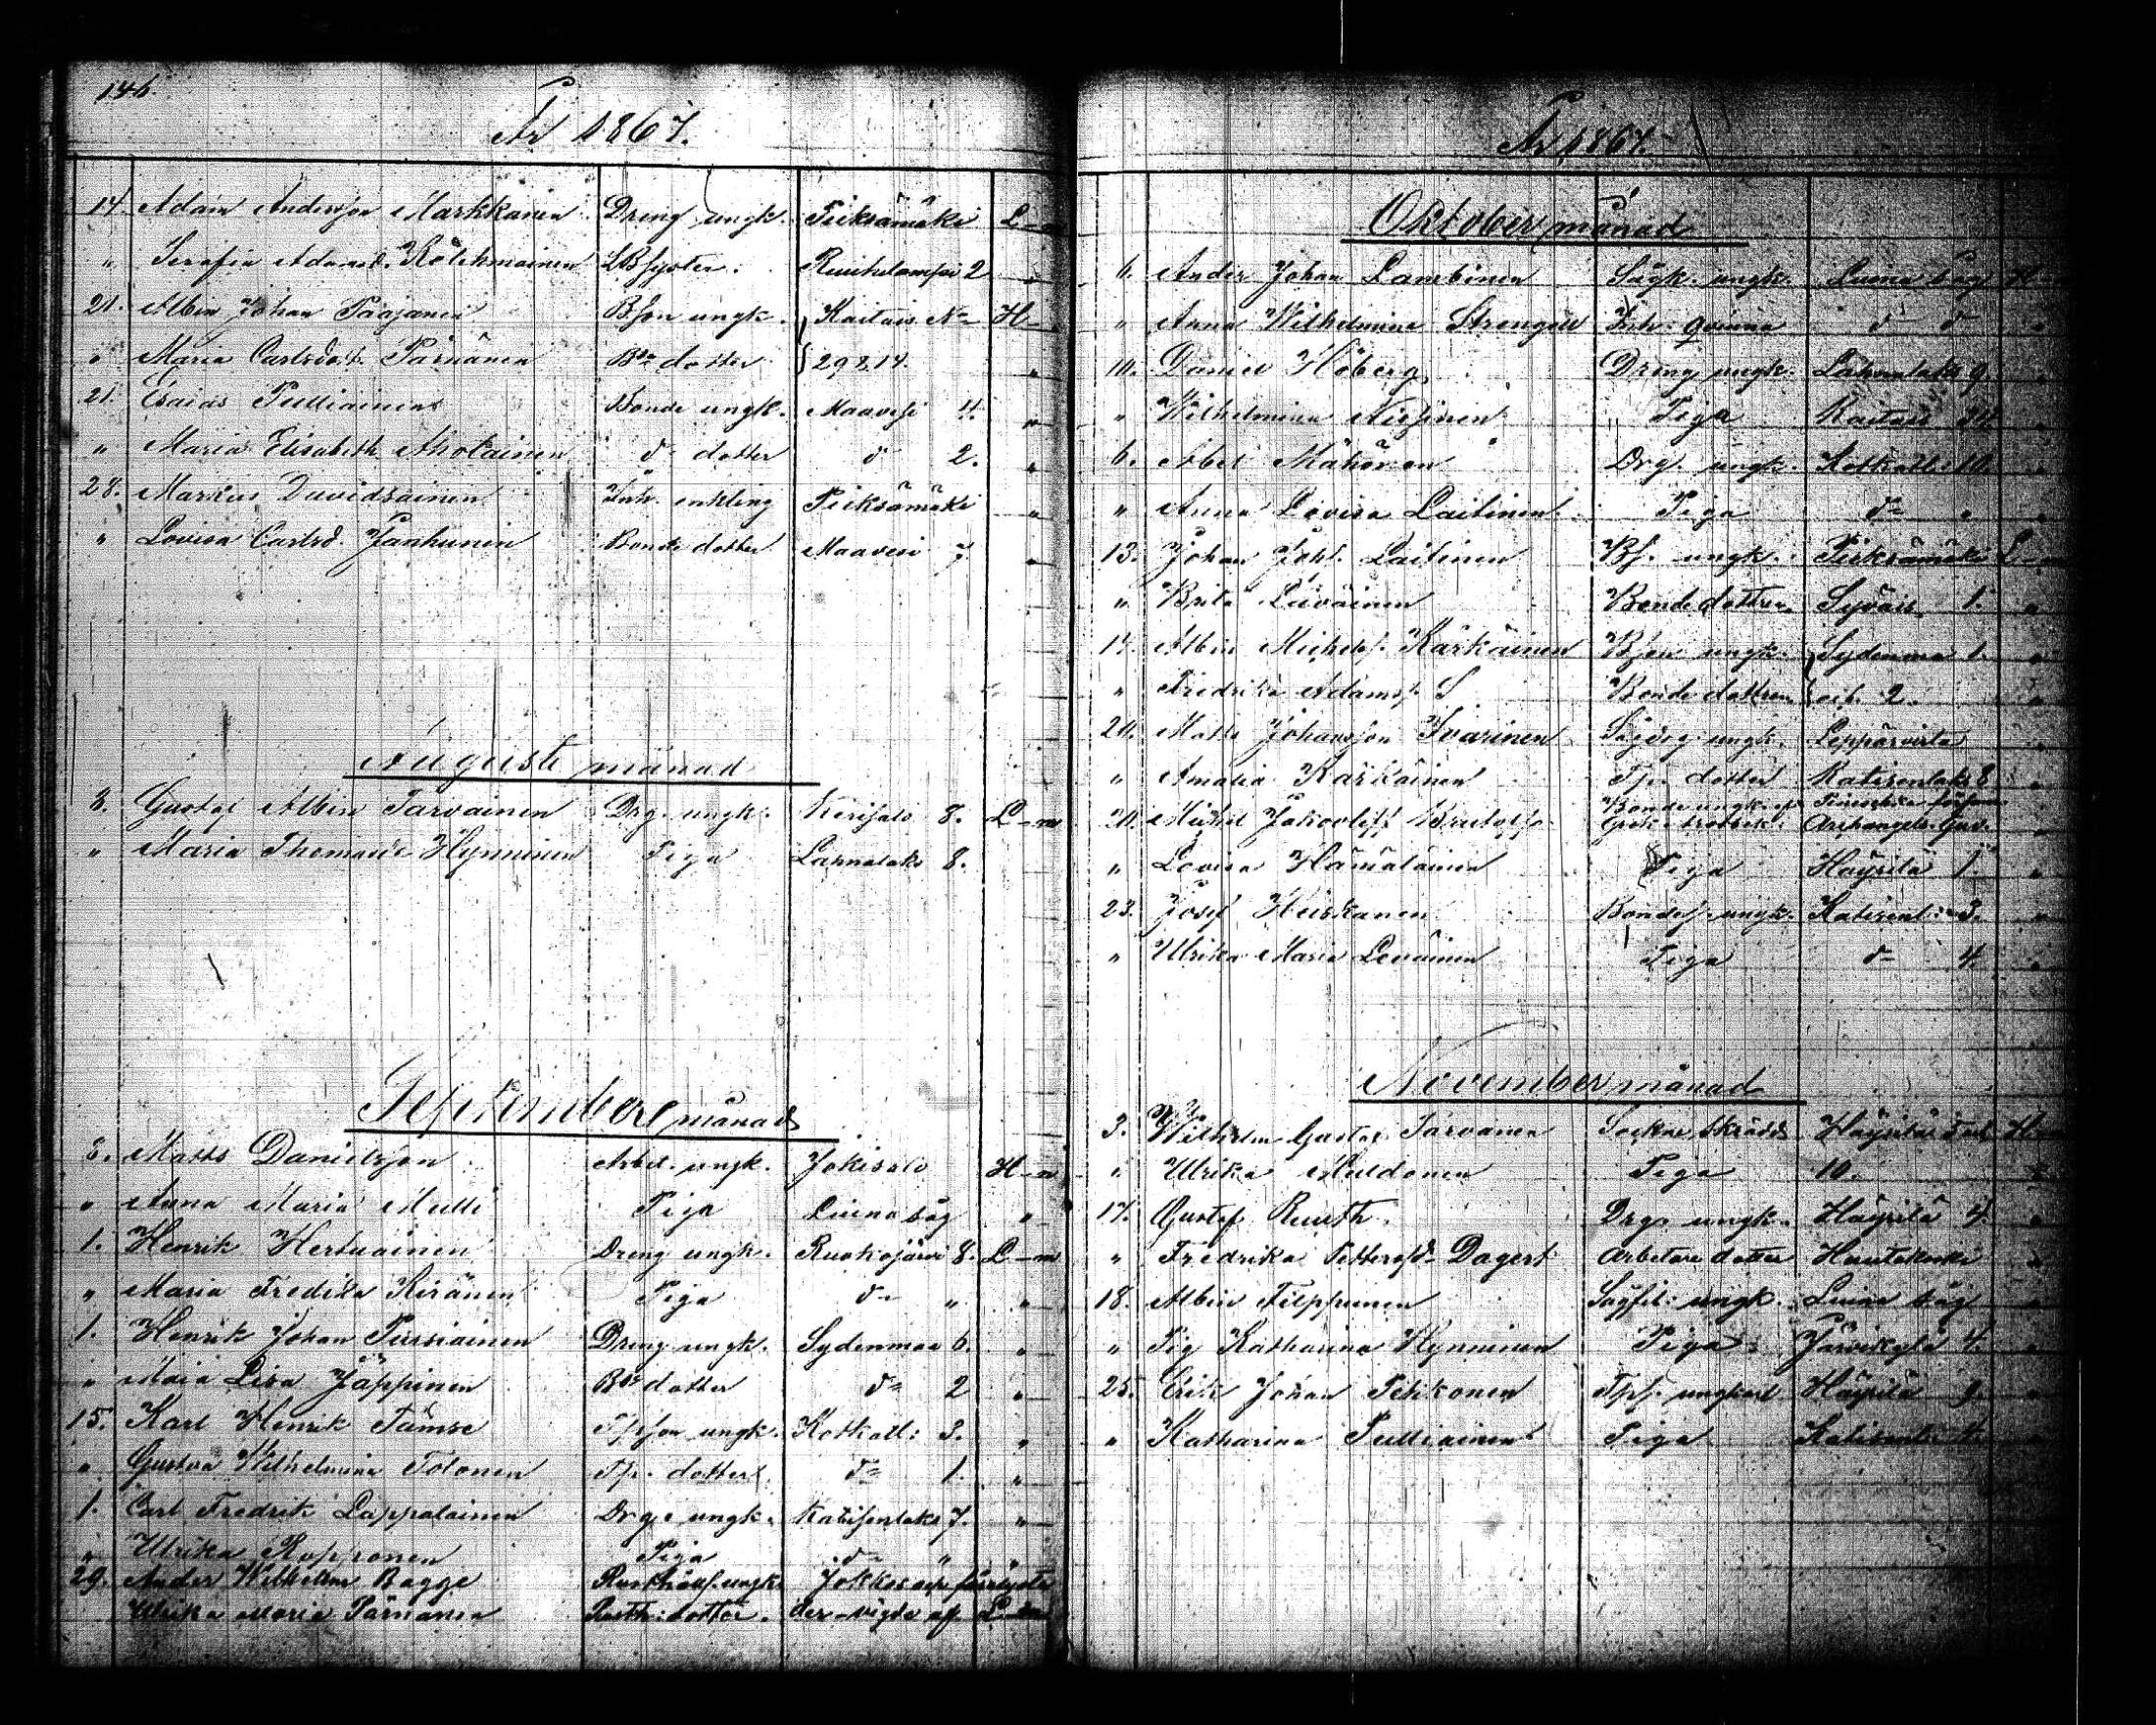 146.
År 1867.
14. Adam Andersson Markkanen Dreng ungk. Pieksämäki L-n
" Serafia Adamsd. Kolehmainen LBsyster. Ruuhilampi 2 "
21. Albin Johan Pääjänen Bson ungk. Kaitais No H-
" Maria Carlsdot. Parnänen Bde dotter 29 & 14. "
21. Esaias Pulliainen Bonde ungk. Maavesi 4. "
" Maria Elisabeth Aholainen d- dotter d- 2. "
28. Markus Davidsainen Inh. enkling Pieksämäki "
" Lovisa Carlsd. Jaahunen Bonde dotter Maavesi 7. "
Augusti månad
3. Gustaf Albin Tarvainen Drg. ungk. Kerisalo 8. L-n
" Maria Thomasd. Hynninen Piga Lahnalaks 8.
September månad
8. Matts Danielsson Arbet. ungk. Jokisalo H-n
" Anna Maria Multi Piga Liuna såg "
1. Henrik Hertuainen Dreng ungk. Ruokojärvi 8. L-n
" Maria Fredika Kiränen Piga d- " "
1. Henrik Johan Pursiainen Dreng ungk. Sydenmaa 6. "
" Maia Lisa Jäppinen Bde dotter d- 2 "
15. Karl Henrik Tamse Tpson ungk. Kotkatl: 3. "
" Gustva Wilhelmina Tolonen Tp. dotter d- 1. "
1. Carl Fredrik Lappalainen Drg. ungk. Katisenlaks 7. "
" Ulrika Ropponen Piga d- "
29. Ander Wilhelm Bagge Rusthålls. ungk. Jokkas
Ulrika Maria Parnanen Rusth: dotter. vigde af L-n
År 1867.
Oktober månad
6. Ander Johan Lambinen Sågk. ungk. Liuna såg H-
" Anna Wilhelmina Strengell Inh: qvinna d- d- "
10. Daniel Höberg Dreng ungk. Lahnalaks 9. "
" Wilhelmina Nissinen Piga Kaitais "
6. Abel Mähönen Drg. ungk. Kotkatl: 10. "
" Anna Lovisa Laitinen Piga d- " "
13. Johan Johs. Laitinen Bs. ungk. Pieksämäki L-
" Brita Leiväinen Bonde dotter Syväis 1. "
17. Albin Michels. Kärkäinen Bson ungk. Sydenmaa 1. "
" Fredrika Adamsd. S Bonde dottren och 2. "
20. Matts Johansson Ivarinen Sågdrg. ungk. Leppävirta "
" Amalia Karkainen Tp. dotter Katisenlaks 8 "
20. Michel Jakovleff Bonde ungk. Archangels. Guv.
" Lovisa Hämäläinen Piga Häyrilä 1. "
23. Josef Heiskanen Bondes. ungk. Katisenl: 3. "
" Ulrika Maria Leväinen Piga d- 4 "
November månad
3. Wilhelm Gustaf Tarvanen Socknе skrädd. Häyrilä H-
" Ulrika Muldonen Piga 10. "
17. Gustaf Ruuth Drg. ungk. Häyrilä 4. "
" Fredrika Pettersd. Dagert Arbetare dotter Hautakoski "
18. Albin Filppunen Sågfil: ungk. Liuna såg "
" Pig Katharina Hynninen Piga Järvikylä 4. "
25. Erik Johan Pelkonen Tps. ungkarl Häyrilä 9. "
" Katharina Pulliainen Piga Katisenl: 4.